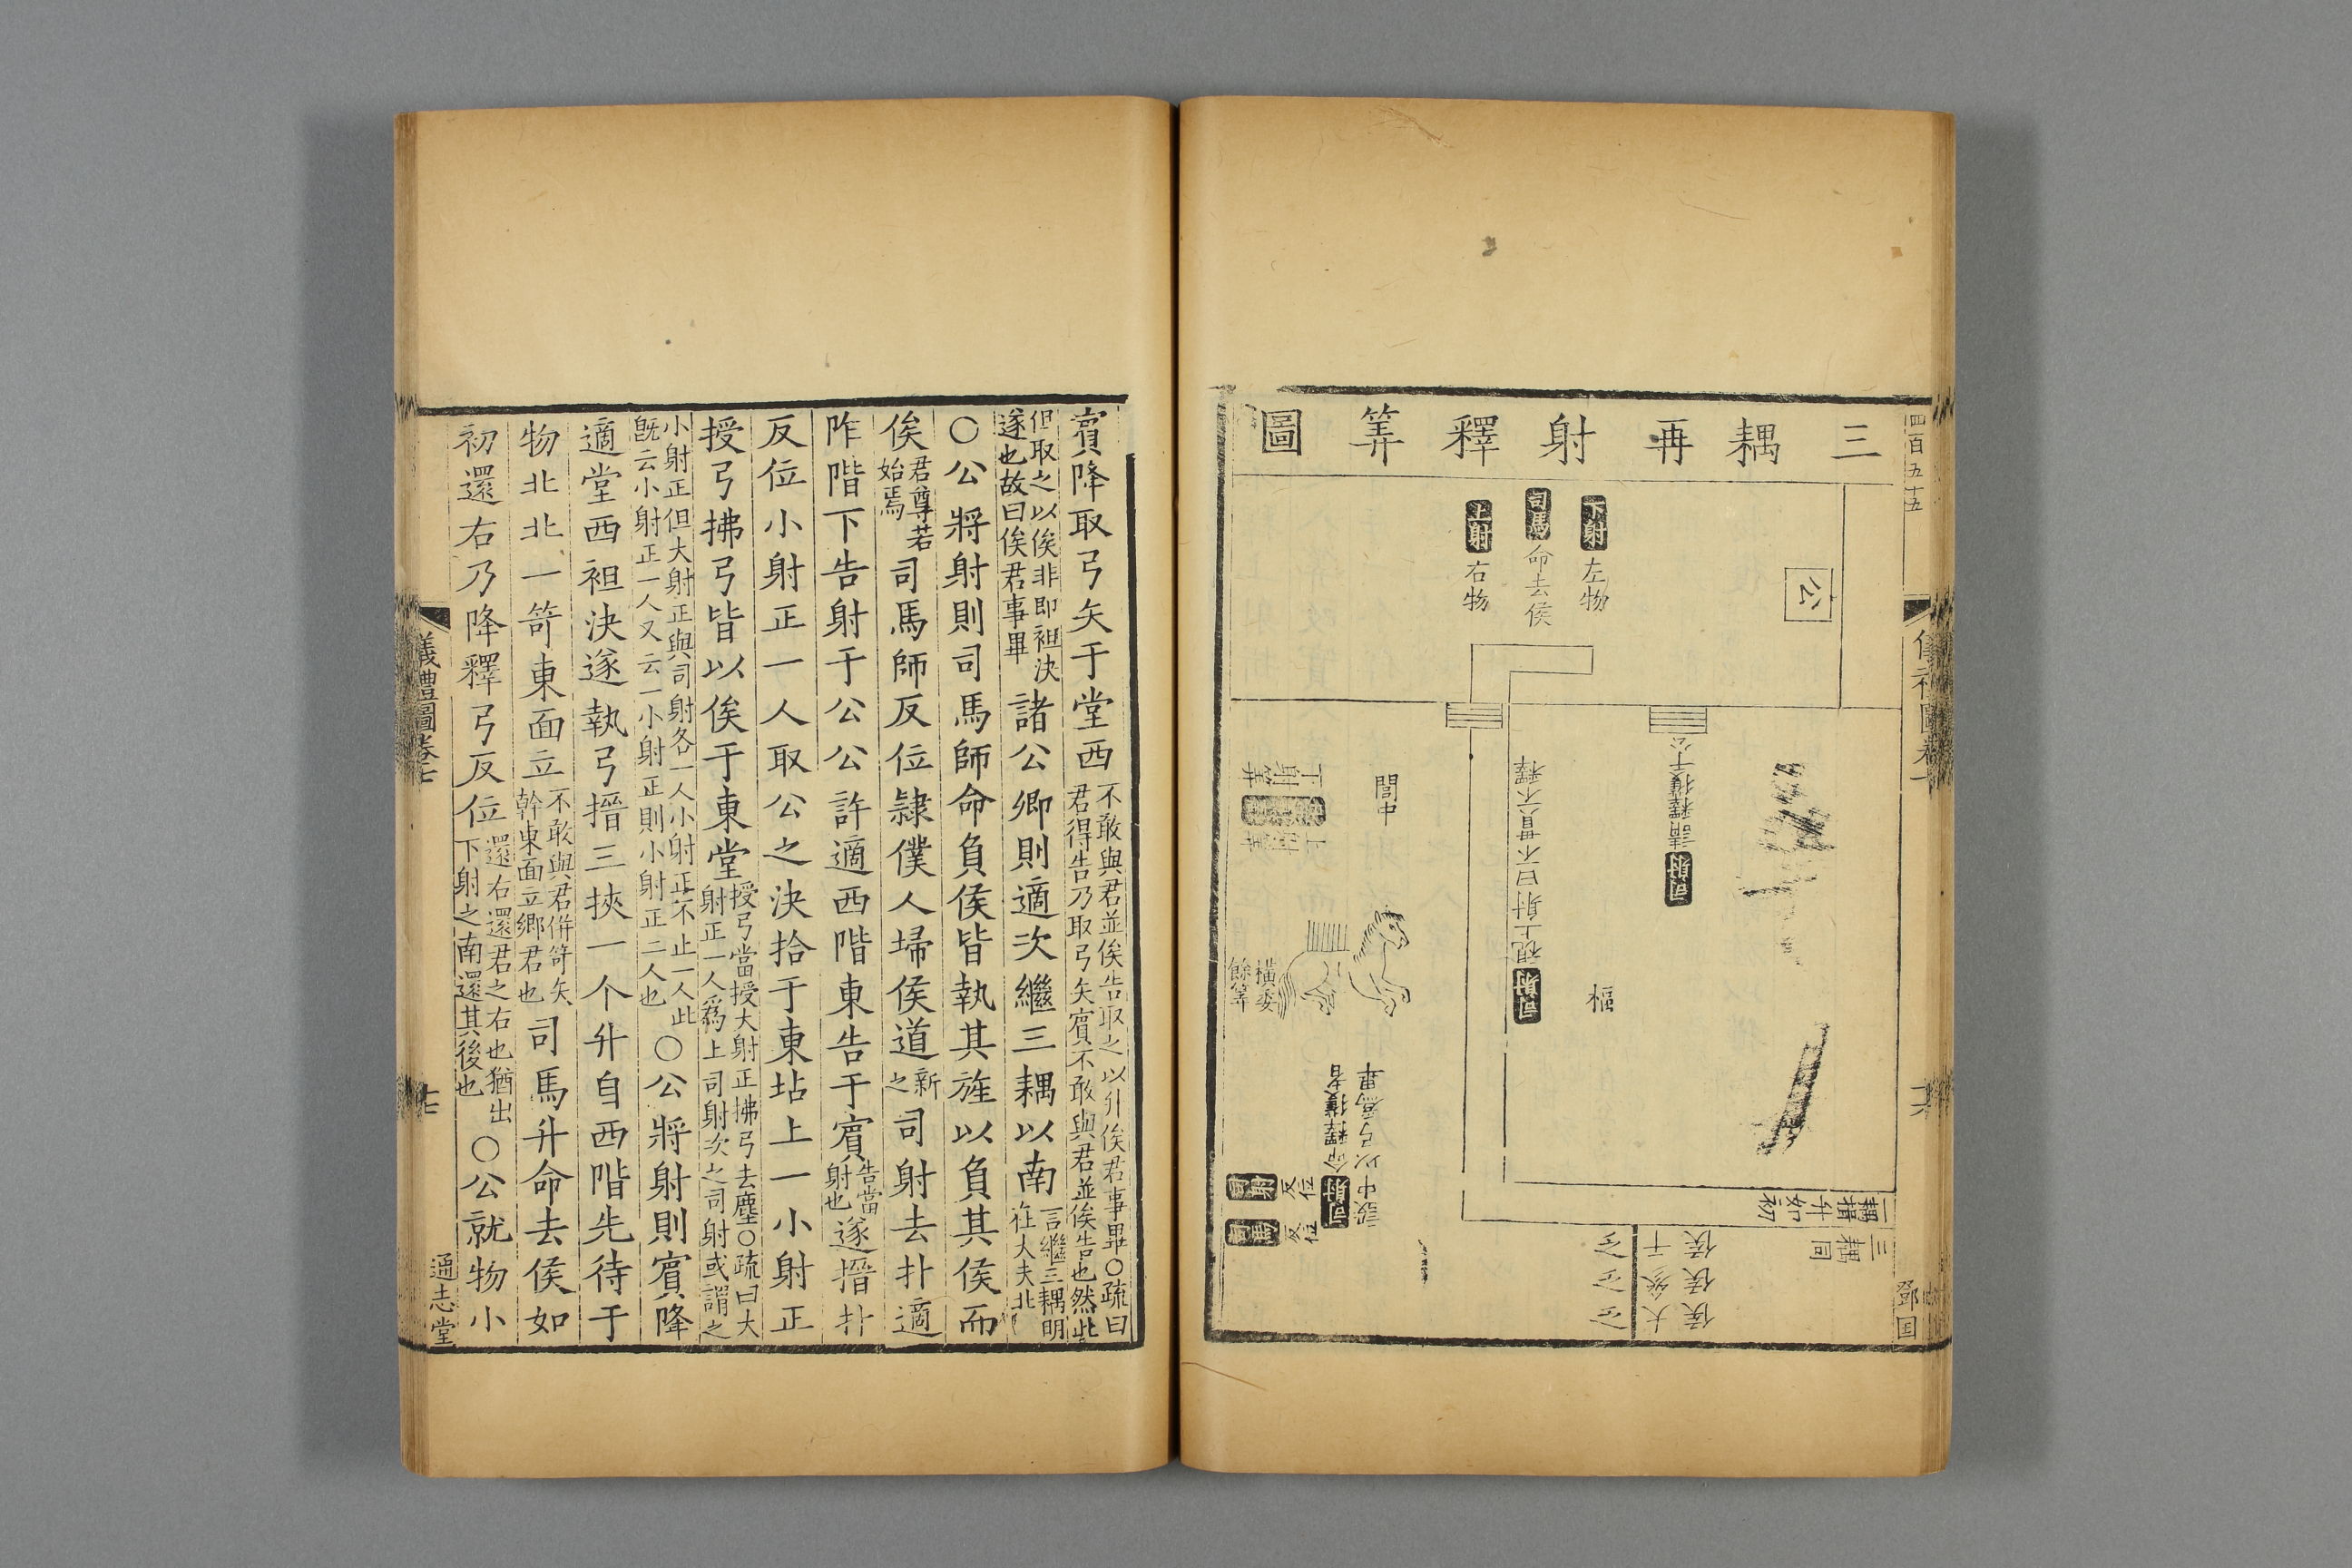 四百五十五
三耦再射釋筭圖
公
下射 左物
司馬 命去侯
上射 右物
司射 請釋獲于公
司射 視上射曰不貫不釋
樞
中閭
橫委
餘筭
司射 命釋獲者
設中以弓爲畢
司射 反位
司馬 反位
三耦揖升如初
三耦同
侯侯侯
干參大
乏乏乏
賔降取弓矢于堂西
不敢與君並俟告取之以升俟君事畢○疏曰
君得告乃取弓矢賔不敢與君並俟告也然此
但取之以俟非即袒決
遂也故曰俟君事畢
諸公卿則適次繼三耦以南
言繼三耦明
在大夫北
○公將射則司馬師命負侯皆執其旌以負其侯而
俟
君尊若
始焉
司馬師反位隷僕人埽侯道
新
之
司射去扑適
阼階下告射于公公許適西階東告于賔
告當
射也
遂搢扑
反位小射正一人取公之決拾于東坫上一小射正
授弓拂弓皆以俟于東堂
授弓當授大射正拂弓去塵○疏曰大
射正一人爲上司射次之司射或謂之
小射正但大射正與司射各一人小射正不止一人此
旣云小射正一人又云一小射正則小射正二人也
○公將射則賔降
適堂西袒決遂執弓搢三挾一个升自西階先待于
物北北一笴東面立
不敢與君併笴矢
幹東面立鄉君也
司馬升命去侯如
初還右乃降釋弓反位
還右還君之右也猶出
下射之南還其後也
○公就物小
儀禮圖卷七
十七
通志堂